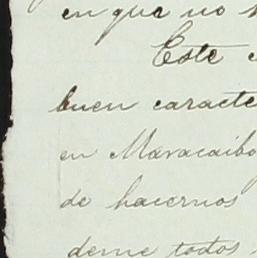 en que no
Este
buen caracte
en Maracaibo
de hacernos
deme todos